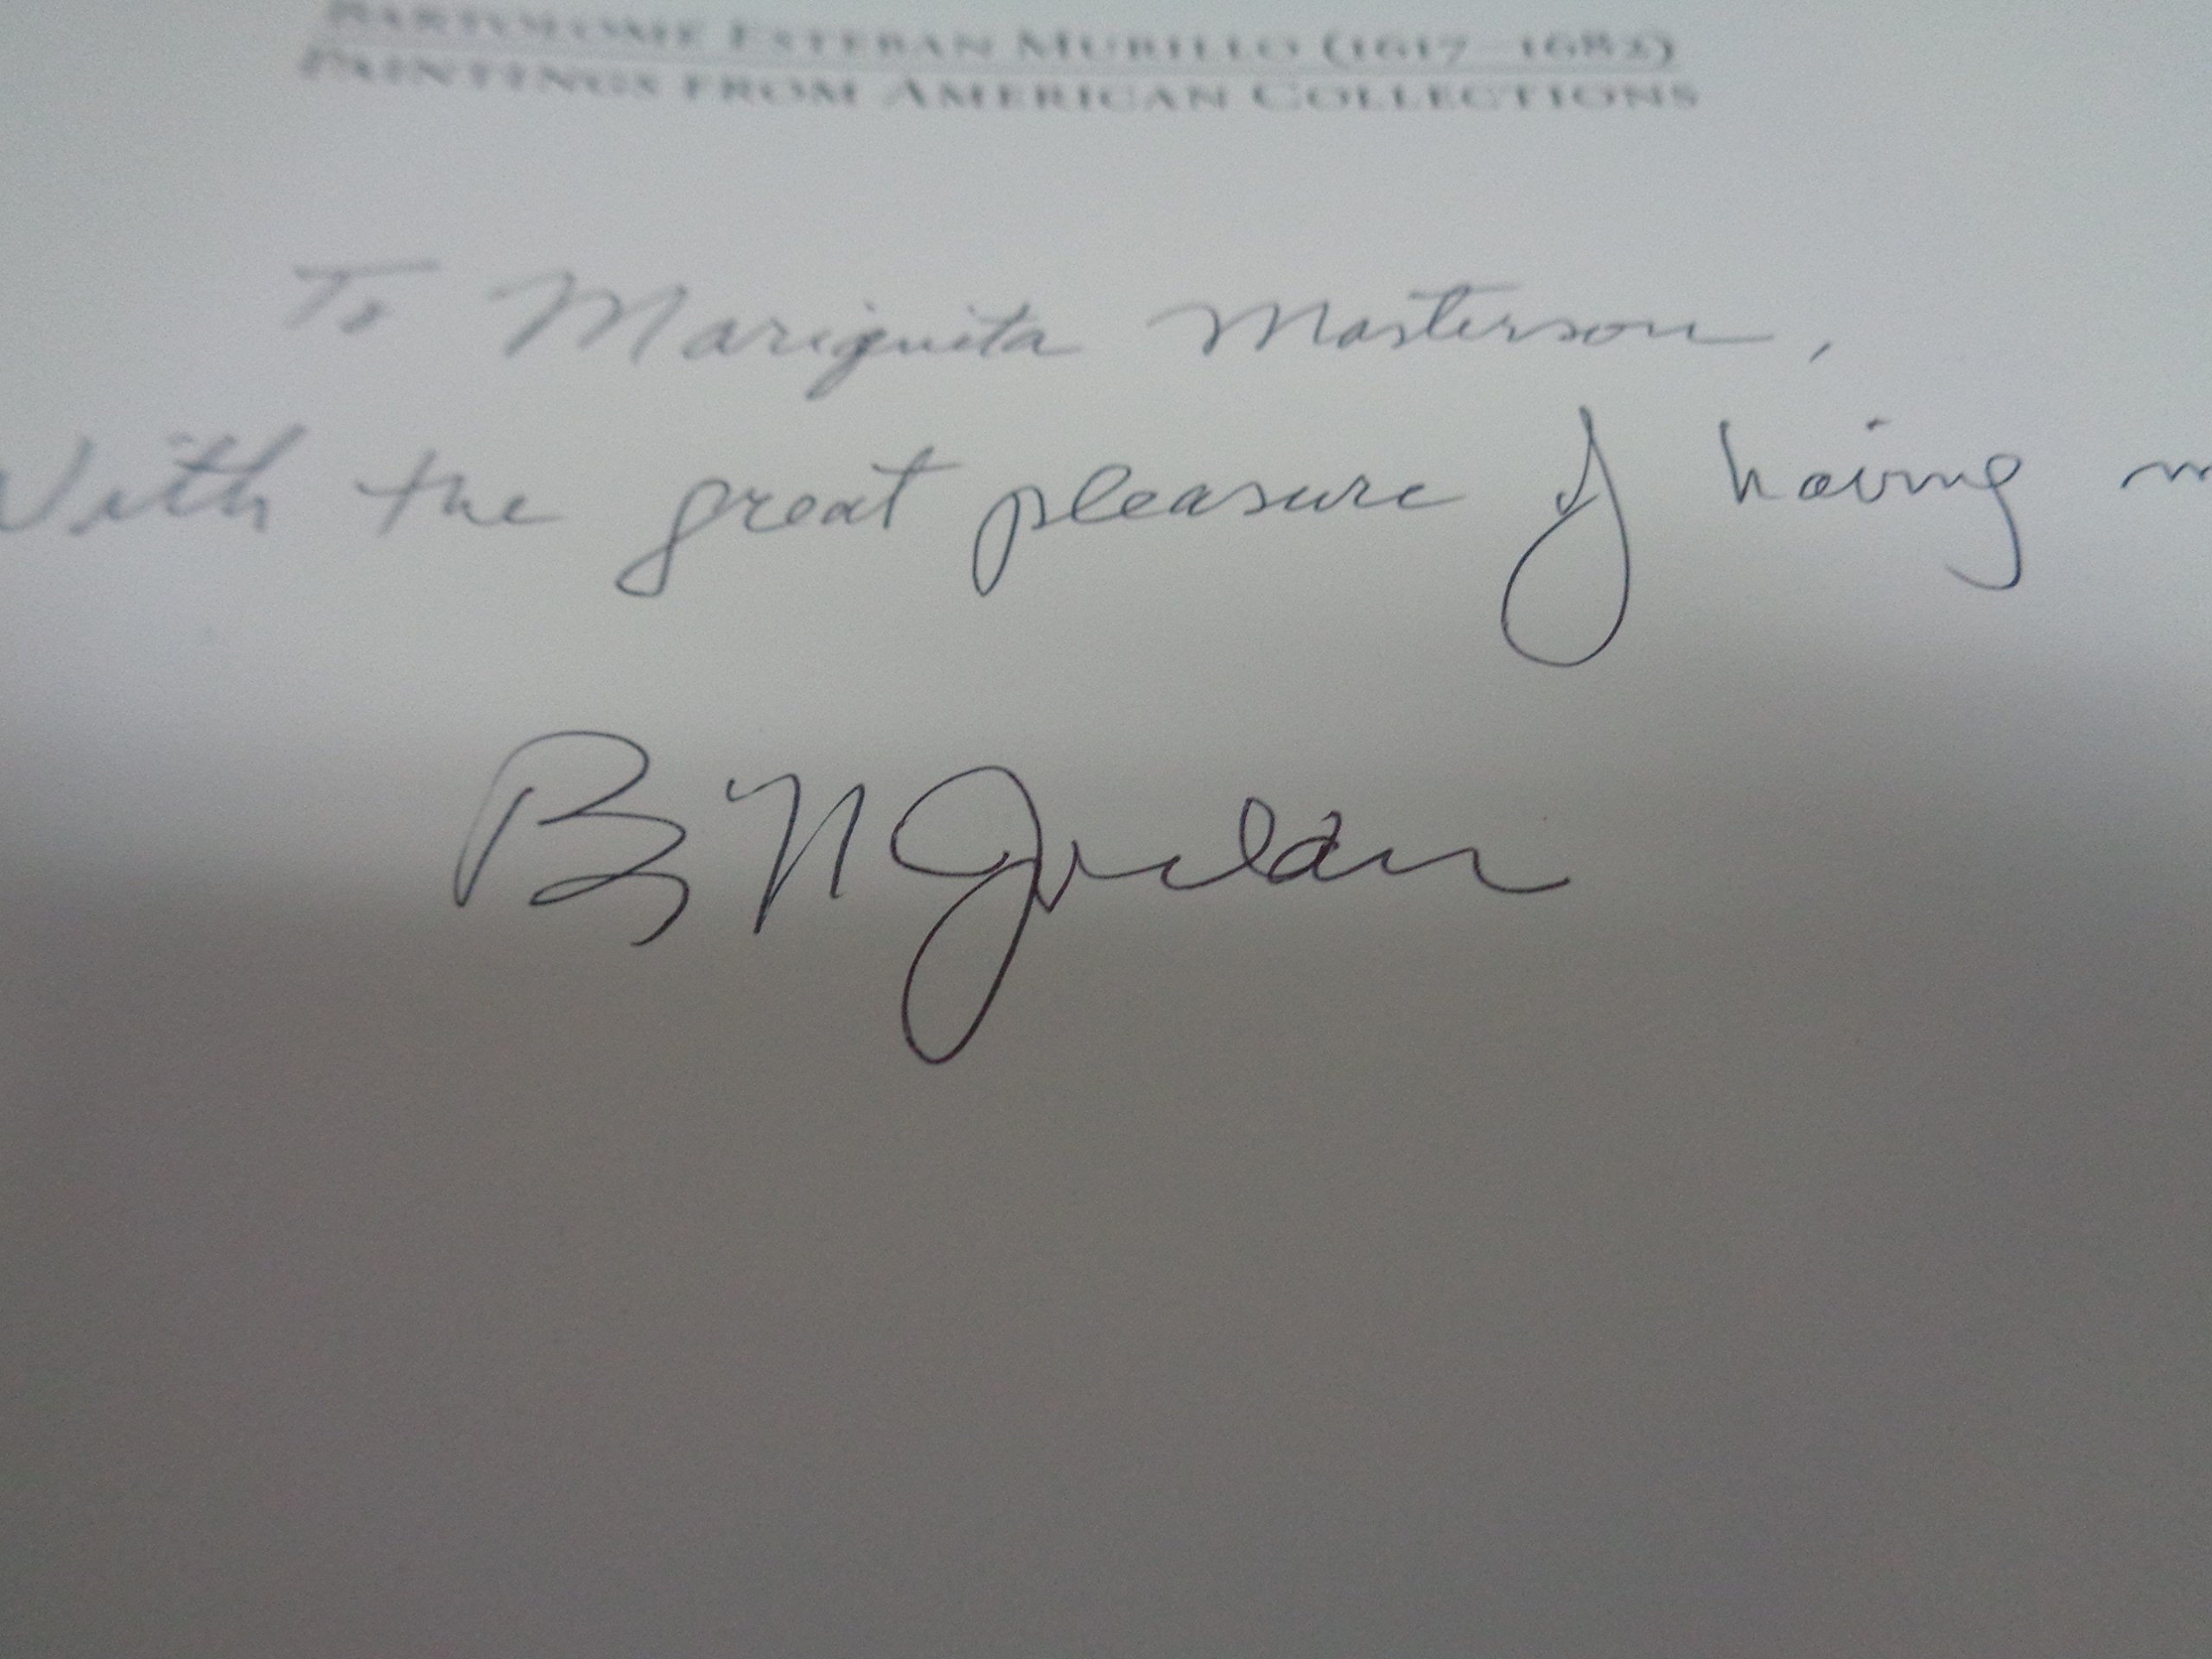 BARTOLOMÉ ESTEBAN MURILLO (1617–1682)
PAINTINGS FROM AMERICAN COLLECTIONS
To Mariquita Masterson,
With the great pleasure of having